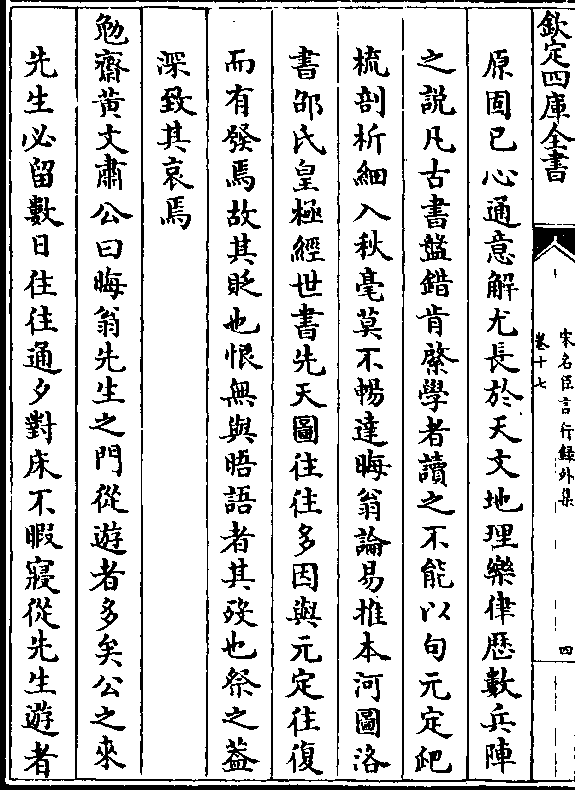 欽定四庫全書
宋名臣言行録外集
卷十七
四
原固已心通意解尤長於天文地理樂律歴數兵陣
之說凡古書盤錯肯綮學者讀之不能以句元定爬
梳剖析細入秋毫莫不暢達晦翁論易推本河圖洛
書邵氏皇極經世書先天圖往往多因與元定往復
而有發焉故其貶也恨無與晤語者其殁也祭之葢
深致其哀焉
勉齋黄文肅公曰晦翁先生之門從遊者多矣公之來
先生必留數日往往通夕對床不暇寢從先生遊者